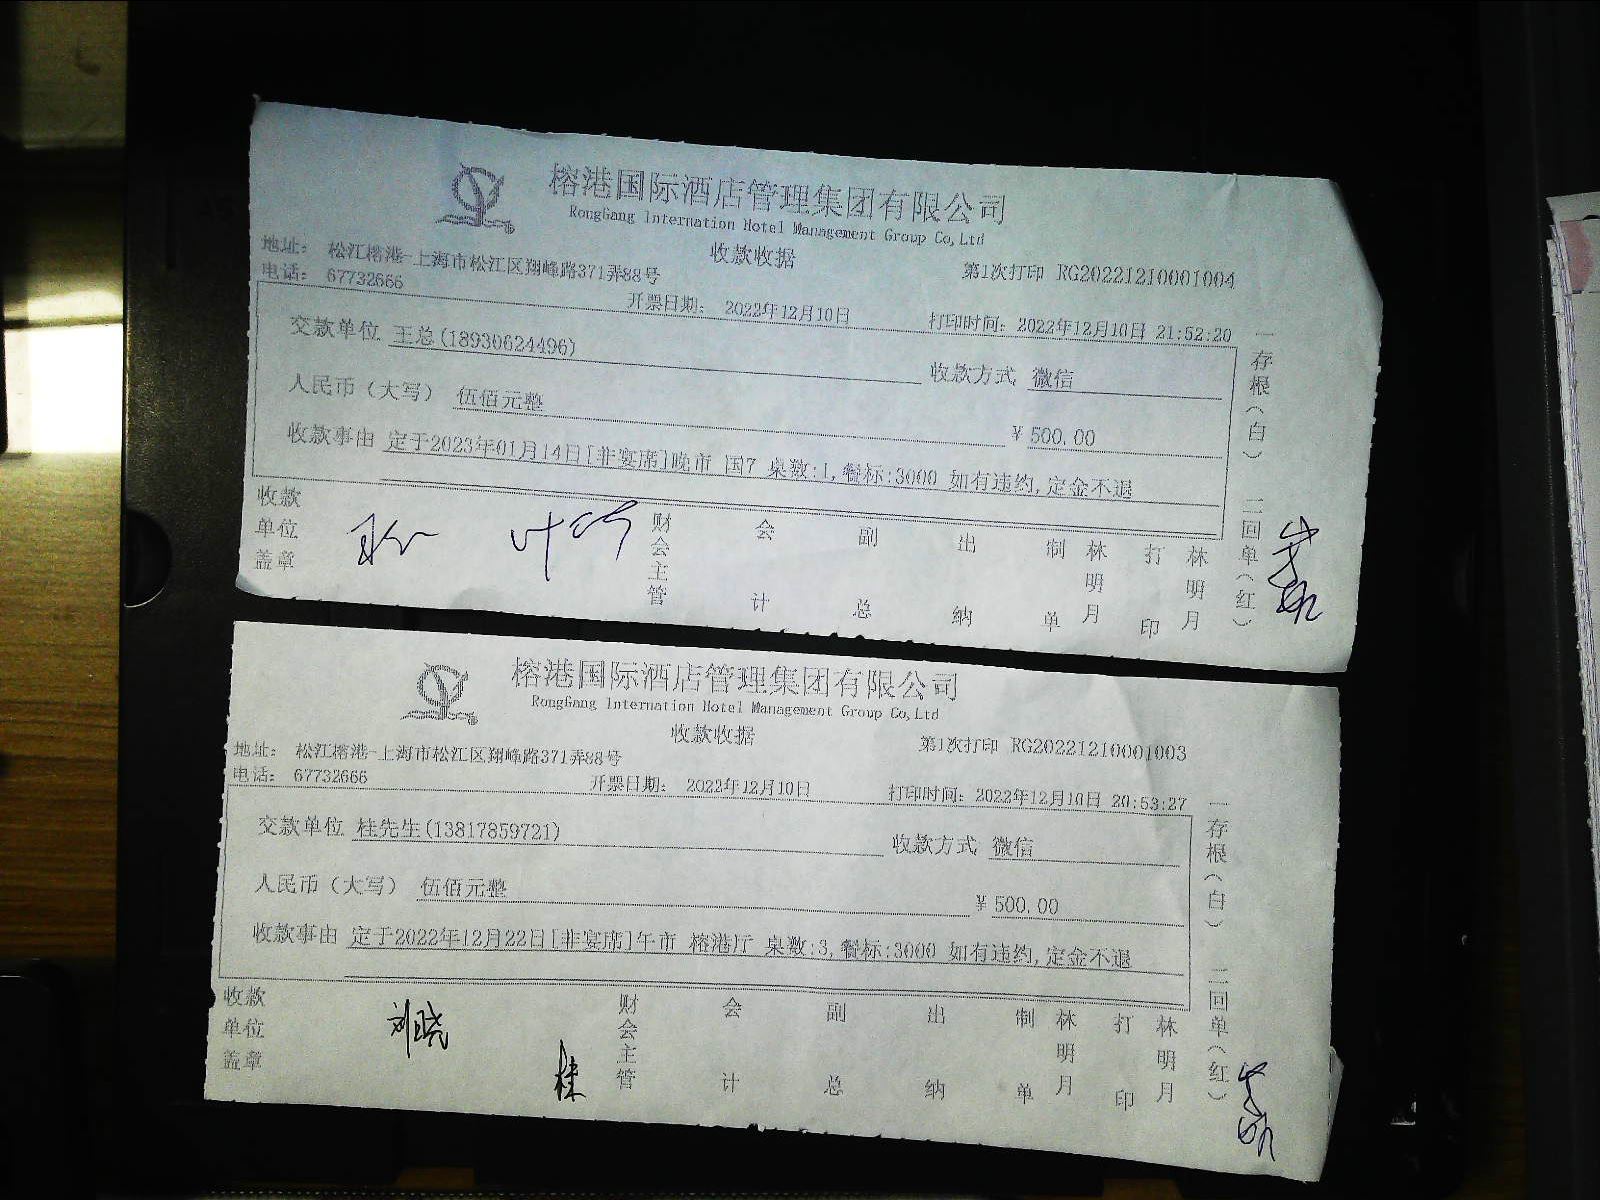 榕港国际酒店管理集团有限公司
RongGang Internation Hotel Management Group Co,Ltd
收款收据
地址： 松江榕港-上海市松江区翔峰路371弄88号
第1次打印 RG20221210001004
电话： 67732666
开票日期： 2022年12月10日
打印时间：2022年12月10日 21:52:20
交款单位 王总(18930624496)
收款方式 微信
人民币（大写） 伍佰元整
¥ 500.00
收款事由 定于2023年01月14日[非宴席]晚市 国7 桌数:1,餐标:3000 如有违约,定金不退
收款单位盖章
财会主管 会计 副总 出纳 制单 林明月 打印 林明月
一存根（白） 二回单（红）
榕港国际酒店管理集团有限公司
RongGang Internation Hotel Management Group Co,Ltd
收款收据
地址： 松江榕港-上海市松江区翔峰路371弄88号
第1次打印 RG20221210001003
电话： 67732666
开票日期： 2022年12月10日
打印时间：2022年12月10日 20:53:27
交款单位 桂先生(13817859721)
收款方式 微信
人民币（大写） 伍佰元整
¥ 500.00
收款事由 定于2022年12月22日[非宴席]午市 榕港厅 桌数:3,餐标:3000 如有违约,定金不退
收款单位盖章
刘晓
桂
财会主管 会计 副总 出纳 制单 林明月 打印 林明月
一存根（白） 二回单（红）